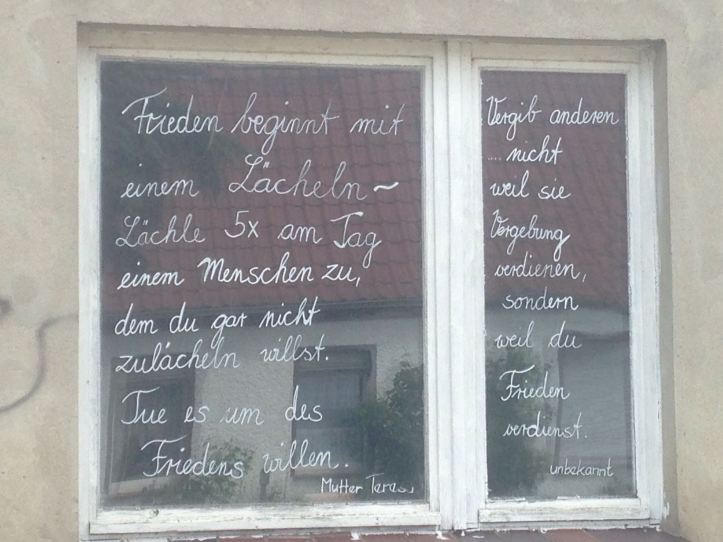 Frieden beginnt mit
einem Lächeln ~
Lächle 5x am Tag
einem Menschen zu,
dem du gar nicht
zulächeln willst.
Tue es um des
Friedens willen.
Mutter
Vergib anderen
.... nicht
weil sie
Vergebung
verdienen,
sondern
weil du
Frieden
verdienst.
unbekannt